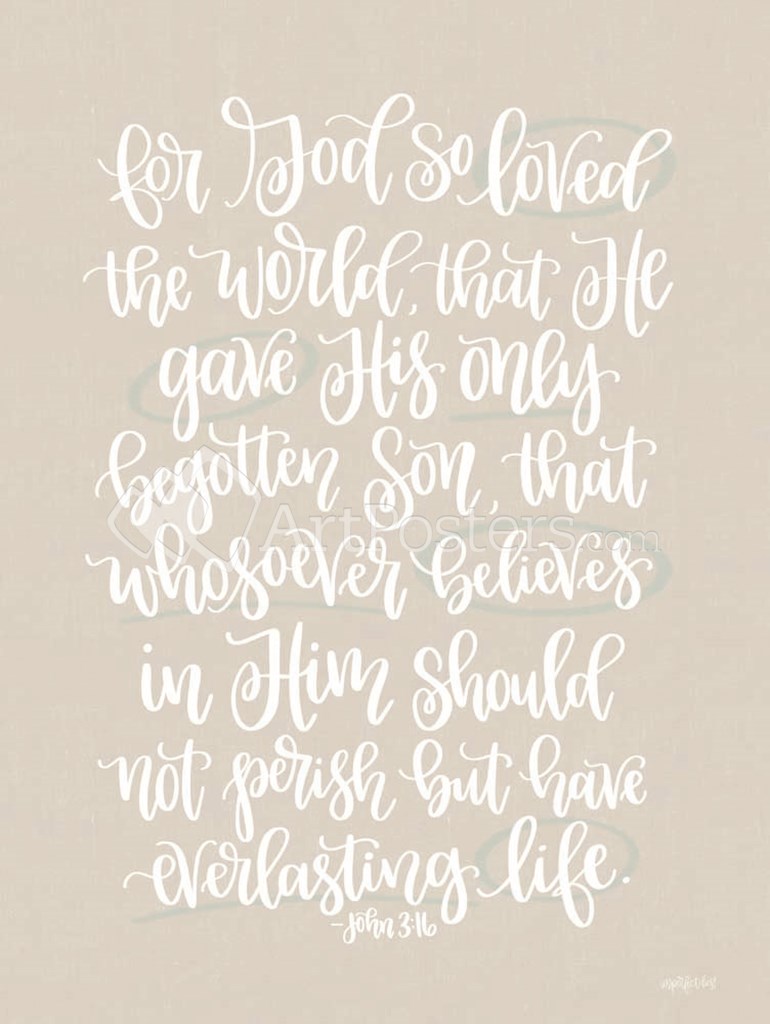 for God so loved
the world, that He
gave His only
begotten Son, that
ArtPosters.com
whosoever believes
in Him should
not perish but have
everlasting life.
-John 3:16